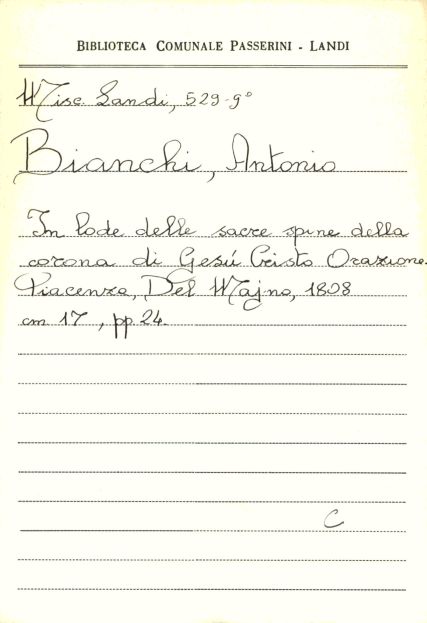 BIBLIOTECA COMUNALE PASSERINI - LANDI
Misc. Landi, 529-9°
Bianchi, Antonio
In lode delle sacre spine della
corona di Gesú Cristo Orazione.
Piacenza, Del Majno, 1808
cm 17, pp. 24.
C